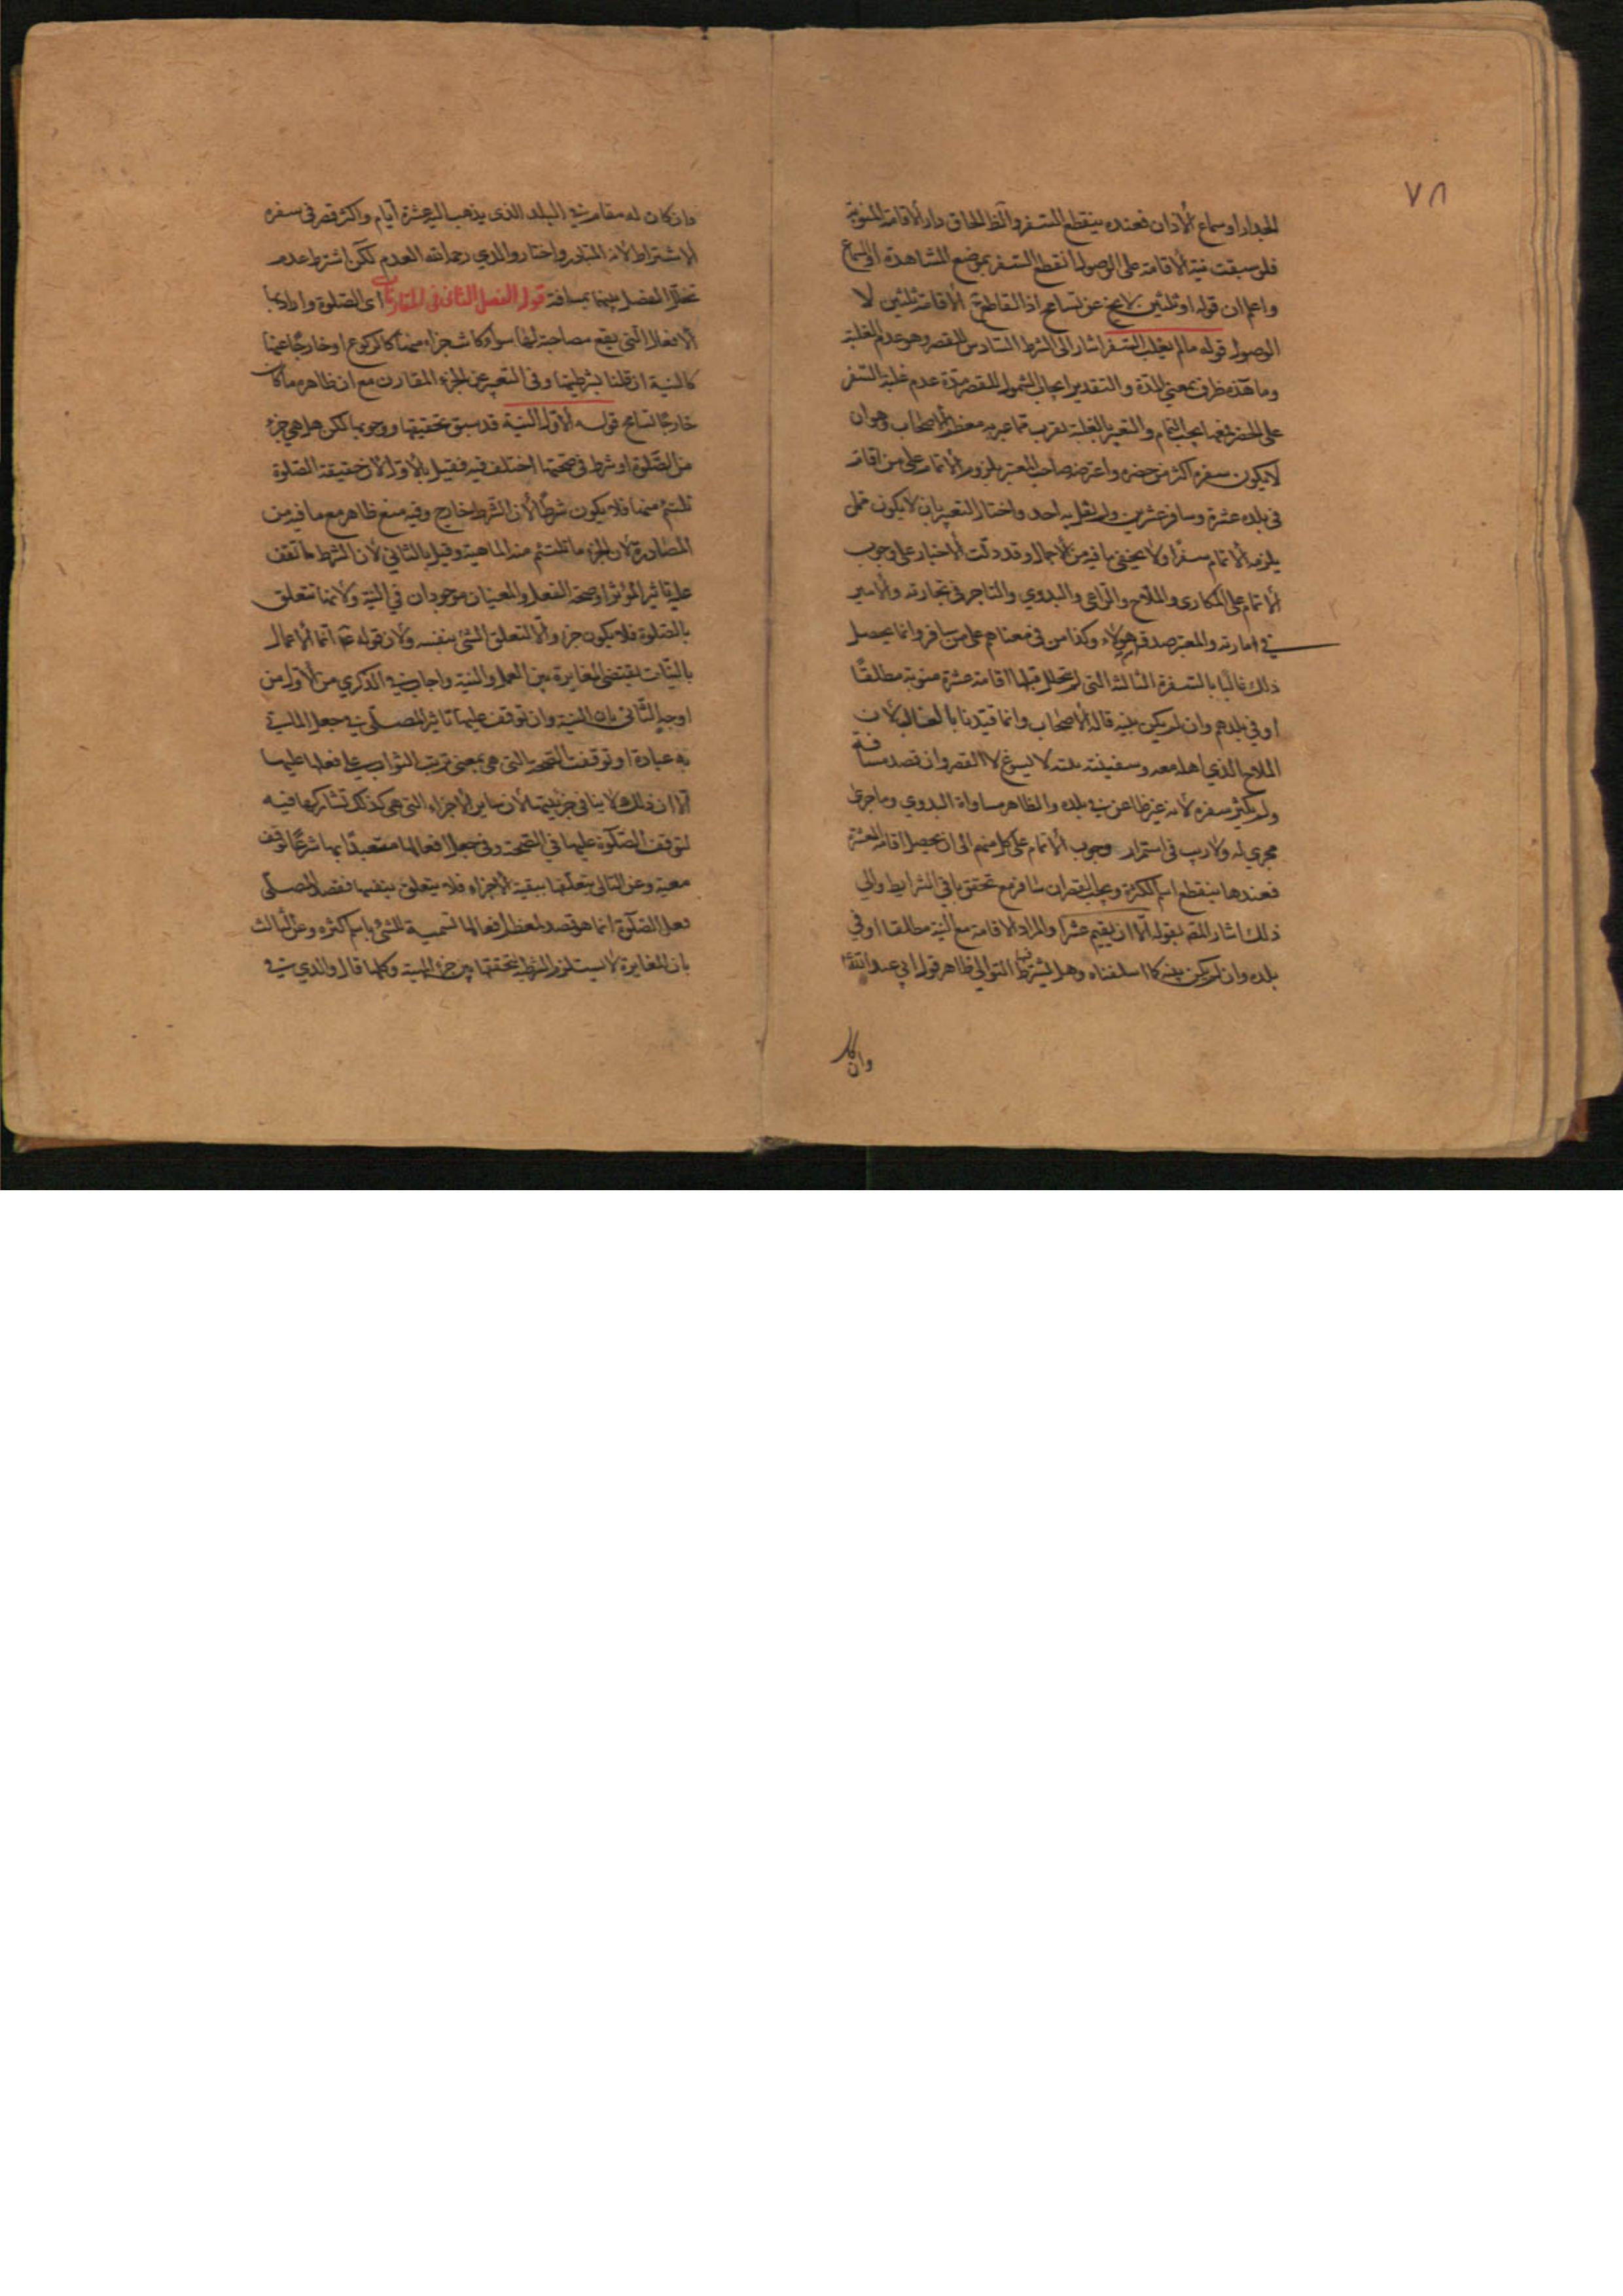 ٧٨
الجدار او سماع الأذان فعنده ينقطع السفر والظ الحاق دار الاقامة المنوية
فلو سبقت نية الاقامة على الوصول انقطع السفر بموضع المشاهدة او السماع
واعلم ان قوله او ثلثين لا يخ عن تسامح اذ القاطع الاقامة ثلثين لا
الوصول قوله ما لم يغلب السفر اشار الى الشرط السادس للقصر وهو عدم الغلبة
وما هذه ظرف بمعنى المدة والتقدير ايجاب الشمول للقصر مدة عدم غلبة السفر
على الحضر فعها يجب التمام والتعبير بالغلبة يقرب مما عبر به معظم الاصحاب وهو ان
لا يكون سفره اكثر من حضره واعترضه صاحب المعتبر بلزوم الاتمام على من اقام
فى بلده عشرة وسافر عشرين ولم يقل به احد واختار التعبير بان لا يكون ممن
يلزمه الاتمام سفرا ولا يخفى ما فيه من الاجمال وقد دلت الاخبار على وجوب
الاتمام على المكارى والملاح والراعى والبدوي والتاجر فى تجارته والامير
في امارته والمعتبر صدق هولاء وكذا من فى معناهم على من سافر وانما يحصل
ذلك غالبا بالسفرة الثالثة التى لم تتخلل قبلها اقامة عشرة منوية مطلقا
او في بلدهم وان لم يكن بنية قاله الاصحاب وانما قيدنا بالغالب لان
الملاح الذي اهله معه وسفينته بيته لا يسوغ له القصر وان قصد مسافة
ولم يكثر سفره لانه غير ظاعن في بلده والظاهر مساواة البدوي وما جرى
مجرى له ولا ريب فى استمرار وجوب الاتمام على كل منهم الى ان يحصل اقامة العشرة
فعندها ينقطع اسم الكثرة ويجب القصر ان سافر مع تحقق باقى الشرايط والى
ذلك اشار المصه بقوله الا ان يقيم عشرا والمراد الاقامة مع النية مطلقا او في
بلده وان لم يكن بنية كما اسلفناه وهل يشترط فيه التوالي ظاهر قول ابى عبد الله ع
وان كان
وان كان له مقام في البلد الذى يذهب اليه عشرة ايام واكثر قصر فى سفره
الاشتراط لانه المتبادر واختار والدي رحمه الله العدم لكن اشترط عدم
تخلل الفصل بينها بمسافة قوله الفصل الثانى فى المقارنات اى الصلوة واراد بها
الافعال التى يقع مصاحبة لها سواء كانت جزاء منها كالركوع او خارجا عنها
كالنية ان قلنا بشرطيتها وفى التعبير عن الجزء المقارن مع ان ظاهره ما كان
خارجا تسامح قوله الاول النية قد سبق تحقيقها ووجوبها لكن هل هي جزء
من الصلوة او شرط فى صحتها اختلف فيه فقيل بالاول لان حقيقة الصلوة
تلتئم منها فلا يكون شرطا لان الشرط خارج وفيه منع ظاهر مع ما فيه من
المصادرة لان الجزء ما تلتئم منه الماهية وقيل بالثاني لان الشرط ما تقف
عليه تاثير المؤثر او صحة الفعل والمعنيان موجودان في النية ولانها تتعلق
بالصلوة فلا يكون جزء والا لتعلق الشئ بنفسه ولان قوله عم انما الاعمال
بالنيات يقتضى المغايرة بين العمل والنية واجاب في الذكرى من الاول من
اوجه الثانى بان النية وان توقف عليها تاثير المصلى في جعل المانى
به عبادة او توقفت الصحة التى هى بمعنى ترتب الثواب على فعلها عليها
الا ان ذلك لا ينافى جزئيتها لان ساير الاجزاء التى هى كذلك تشاركها فيه
لتوقف الصلوة عليها في الصحة وفى جعل افعالها متعبدا بها شرعا توقف
معية وعن الثانى بتعلقها ببقية الاجزاء فلا يتعلق بنفسها فقصد المصلى
فعل الصلوة انما هو قصد لمعظم افعالها تسمية للشئ باسم اكثره وعن الثالث
بان المغايرة لا يستلزم الشرطية لتحققها بين جزء المهية وكلها قال والدي في